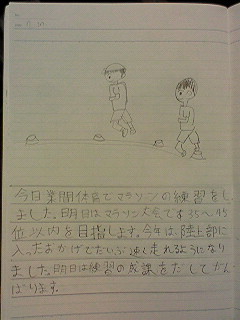 今日業間体育でマラソンの練習をし
ました。明日はマラソン大会です35〜45
位以内を目指します。今年は陸上部に
入ったおかげでだいぶ速く走れるようになり
ました。明日は練習の成課をだしてがん
ばります。